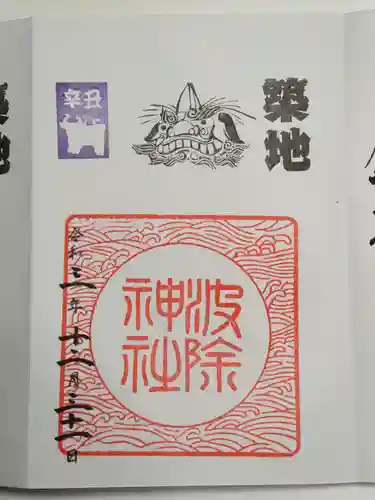 辛丑
築地
波除
神社
令和三年十二月三十一日